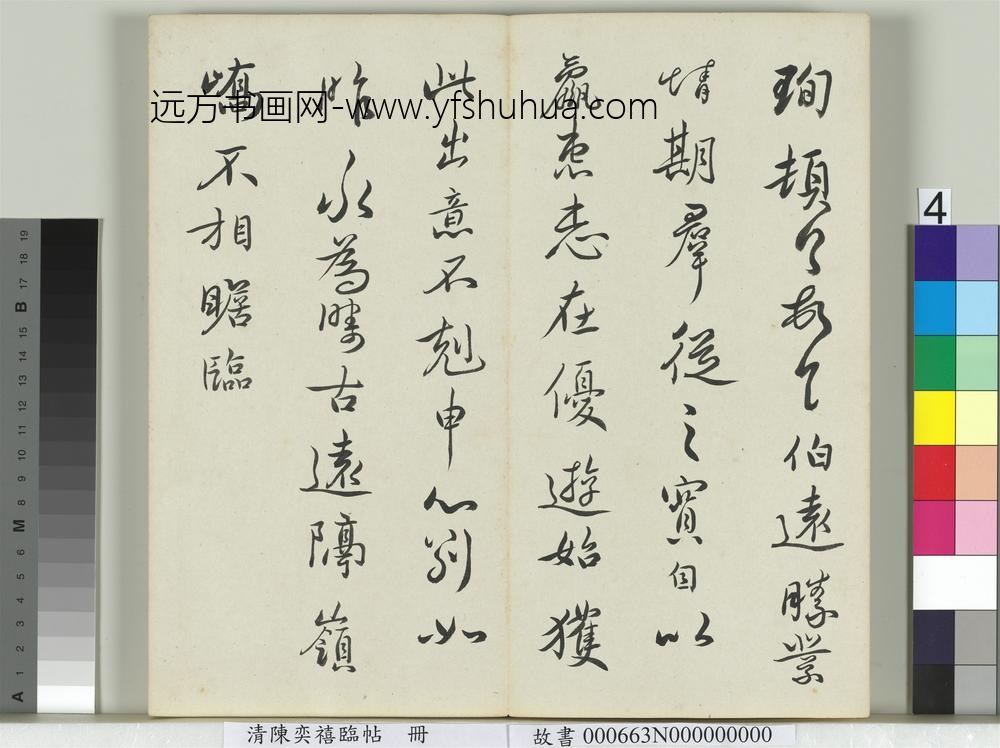 珣頓首頓首伯遠勝業
情期羣從之寶自以
羸患志在優遊始獲
此出意不剋申分別如
昨永為疇古遠隔嶺
嶠不相瞻臨
远方书画网-www.yfshuhua.com
清陳奕禧臨帖 冊
故書 000663N000000000
4
A 1 2 3 4 5 6 M 8 9 10 11 12 13 14 15 B 17 18 19